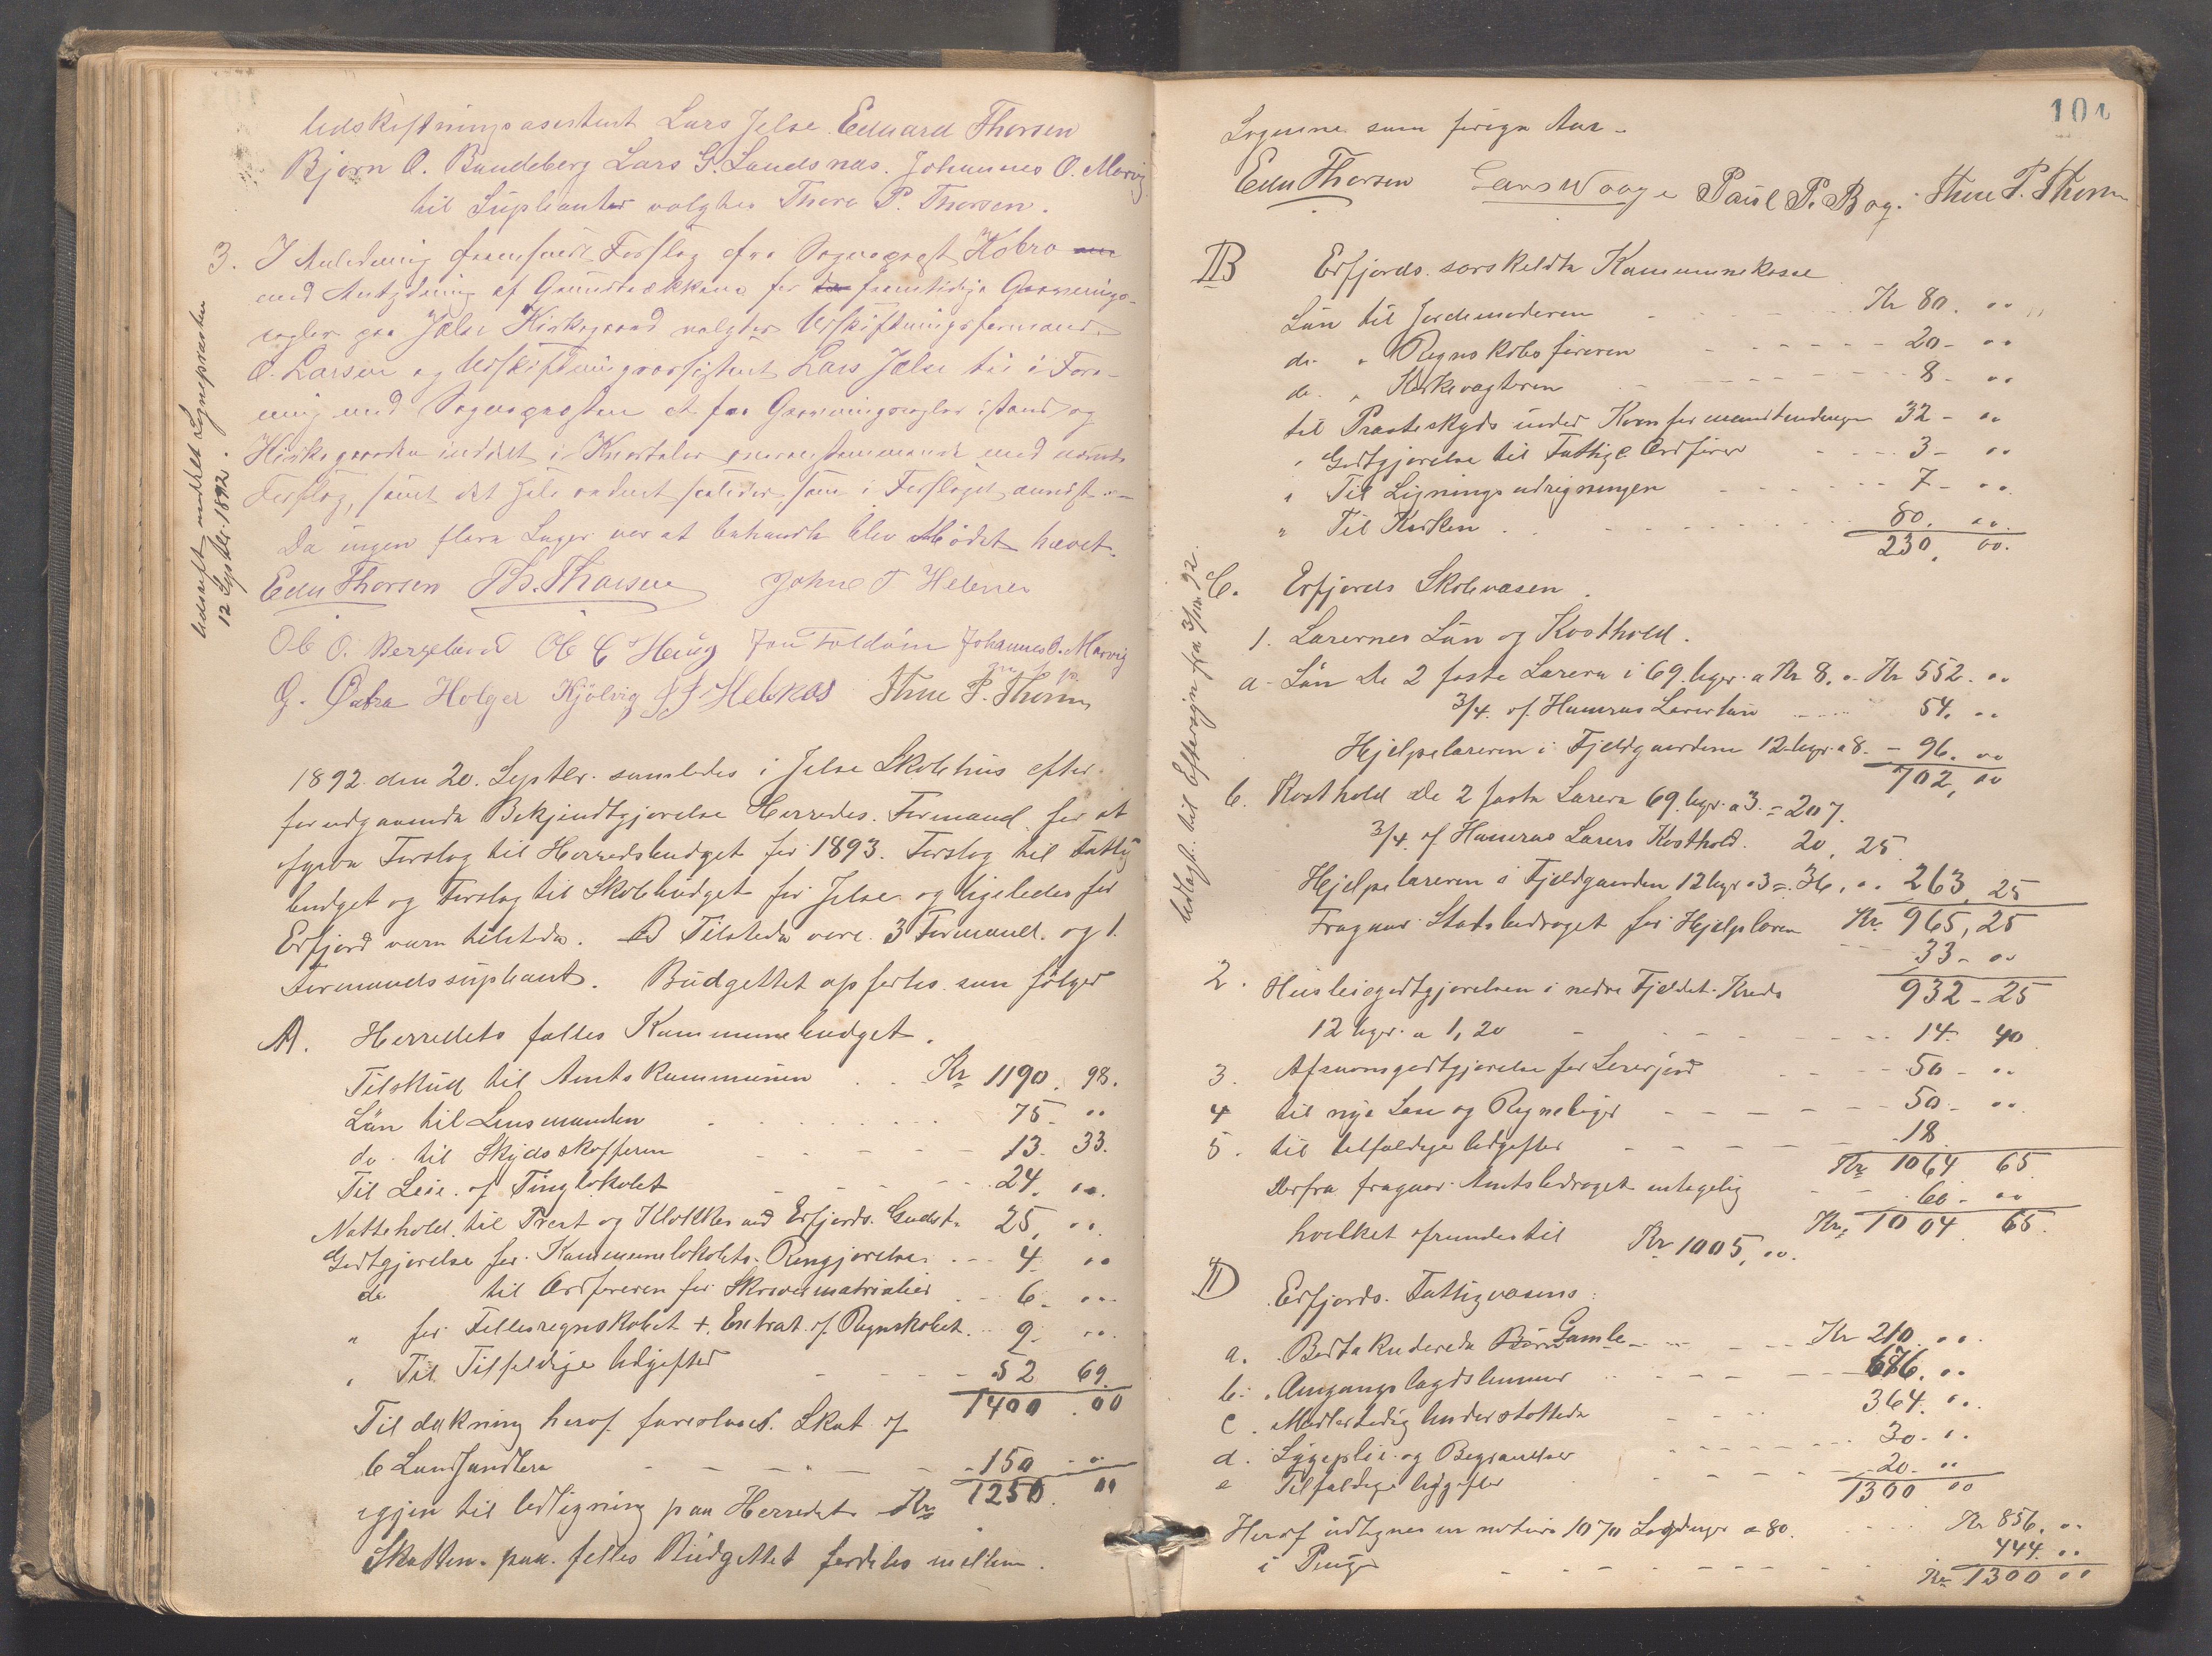 Udskiftningsasistent Lars Jelse. Edvard Thorsen
Bjørn O. Bandeberg Lars G. Landsnas. Johannes O. Marvig
til Suplianter valgtes Thore P. Thorsen.
3. I Anledning fremsendt Forslag fra Sogneprest Kobro
med Antydning af Grundtrækkene for fremtidige Gravnings-
regler paa Jælse Kirkegaard valgtes Udskiftningsformand
O. Larsen og Udskiftningsassistent Lars Jælse til i Fore-
ning med Sognepresten at faa Gravningsregler istand og
Kirkegaarden inddelt i Kvartaler overensstemmende med nævnte
Forslag, samt det hele ordnet saaledes som i Forslaget
Da ingen flere Sager var at behandle blev Mødet hævet.
Edv Thorsen Th. Thorsen John T Helener
Ob O. Bergeland Ob C Heug Jon Foldøin Johannes O. Marvig
G. Østrø Holger Kjölvig Hebkas Thore P. Thorsen
Udskrift meddelt Sognepræsten
12 Septbr. 1892.
1892 den 20. Septbr. samledes i Jelse Skolehus efter
forudgaaende Bekjendtgjørelse Herredes. Formænd for at
afgive Forslag til Herredsbudget for 1893. Forslag til Fattig
budget og Forslag til Skolebudget for Jelse og ligeledes for
Erfjord varn tilstede. Tilstede vare 3 Formænd. og 1.
Formandssupliant. Budgettet opførtes som følger
A. Herredets fælles Kommunebudget.
Tilskud til Amtskommunen . . Kr 1190. 98.
Lön til Lensmanden 75 - "
do. til Skydsskafferen 13. 33.
Til Leie af Tinglokalet 24. "
Nattehold. til Prest og Klokker ved Erfjords. Gudst. 25, "
Godtgjørelse for Kommunelokalets Rengjørelse 4. "
do til Ordføreren for Skrivematrialier 6. "
" for Fellesregnskabet + Extrat af Regnskabet. 9. "
" Til Tilfeldige Udgifter 52 69.
1400 . 00
Til dækning heraf foreslaaes. Skat af
6 Landhandlere 150 "
igjen til Udligning paa Herredet Kr 1250. 00
Skatten paa felles Budgettet fordeles mellem
101
Sognene som forige Aar -
Edv Thorsen Lars Waage Paul P. Bog. Thore P. Thorsen
B Erfjords særskeldte Kommunekasse
Lön til Jordemoderen Kr 80. "
do. " Regnskabsføreren 20 - "
do. " Kirkevagteren 8 - "
til Præsteskyds under Konfermandlæsningen 32 - "
" Godtgjørelse til Fattige Ordfører 3 - "
" Til Ligningsudregningen 7 - "
" Til Kirken 80. "
230, 00.
Udlagt. til Eftersyn fra 3/10 92.
C. Erfjords Skolevæsen.
1. Lærernes Lön og Kosthold.
a - Lön de 2 faste Lærere i 69. uger a Kr 8. " Kr 552. "
3/4. af Hamras Lærerlön 54. "
Hjelpelæreren i Fjeldgaardene 12 uger a 8. - 96. "
702, "
b. Kosthold de 2 faste Lærere 69. uger a 3. = 207.
3/4. af Hamras Lærers Kosthold. 20, 25
Hjelpelæreren i Fjeldgaarden 12 uger a 3 = 36. " 263, 25
Fragaar Statsbedraget for Hjelplæren Kr. 965, 25
33 - "
932 - 25
2. Husleiegodtgjørelsen i nedre Fjeldet. Kreds
12 uger a 1,20 14. 40
3. Afsavnsgodtgjørelse for Lererjord 50 - "
4 til nye Læse og Regnebøger 50 - "
5. til tilfældige Udgifter 18
Kr 1064 65
Derfra fragaar Amtsbedraget antagelig 60 - "
Kr. 1004. 65.
hvilket afrundes til Kr 1005, "
D Erfjords. Fattigvæsens.
a. Bortakuderede Børn Gamle Kr 210. "
b. Omgangslægdslemmer 676. "
c. Midlertidig Understøttede 364. "
d. Sygeplei. og Begravelser 30. "
e Tilfældige Udgifter 20. "
1300 "
Heraf udlignes in natura 1070 Lægdsuger a 80. Kr 856. "
i Penge 444. "
Kr. 1300 "